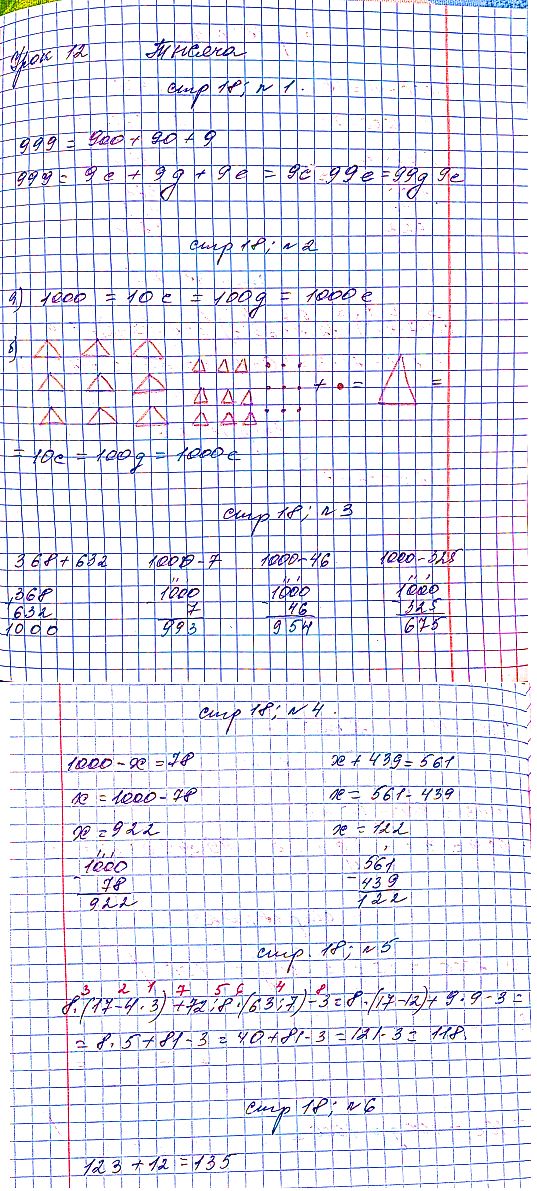 Урок 12 Тысяча
стр 18; № 1.
999 = 900 + 90 + 9
999 = 9с + 9д + 9е = 9с 99е = 99д 9е
стр 18; № 2
а) 1000 = 10с = 100д = 1000е
б) + • = =
= 10с = 100д = 1000е
стр 18; № 3
368 + 632 1000 - 7 1000 - 46 1000 - 325
368 1000 1000 1000
632 7 46 325
1000 993 954 675
стр 18; № 4.
1000 - х = 78 х + 439 = 561
х = 1000 - 78 х = 561 - 439
х = 922 х = 122
1000 561
- 78 - 439
922 122
стр. 18; № 5
3 2 1 7 5 6 4 8
8·(17-4·3)+72:8·(63:7)-3=8·(17-12)+9·9-3=
= 8·5+81-3 = 40+81-3 = 121-3 = 118.
стр 18; № 6
123 + 12 = 135